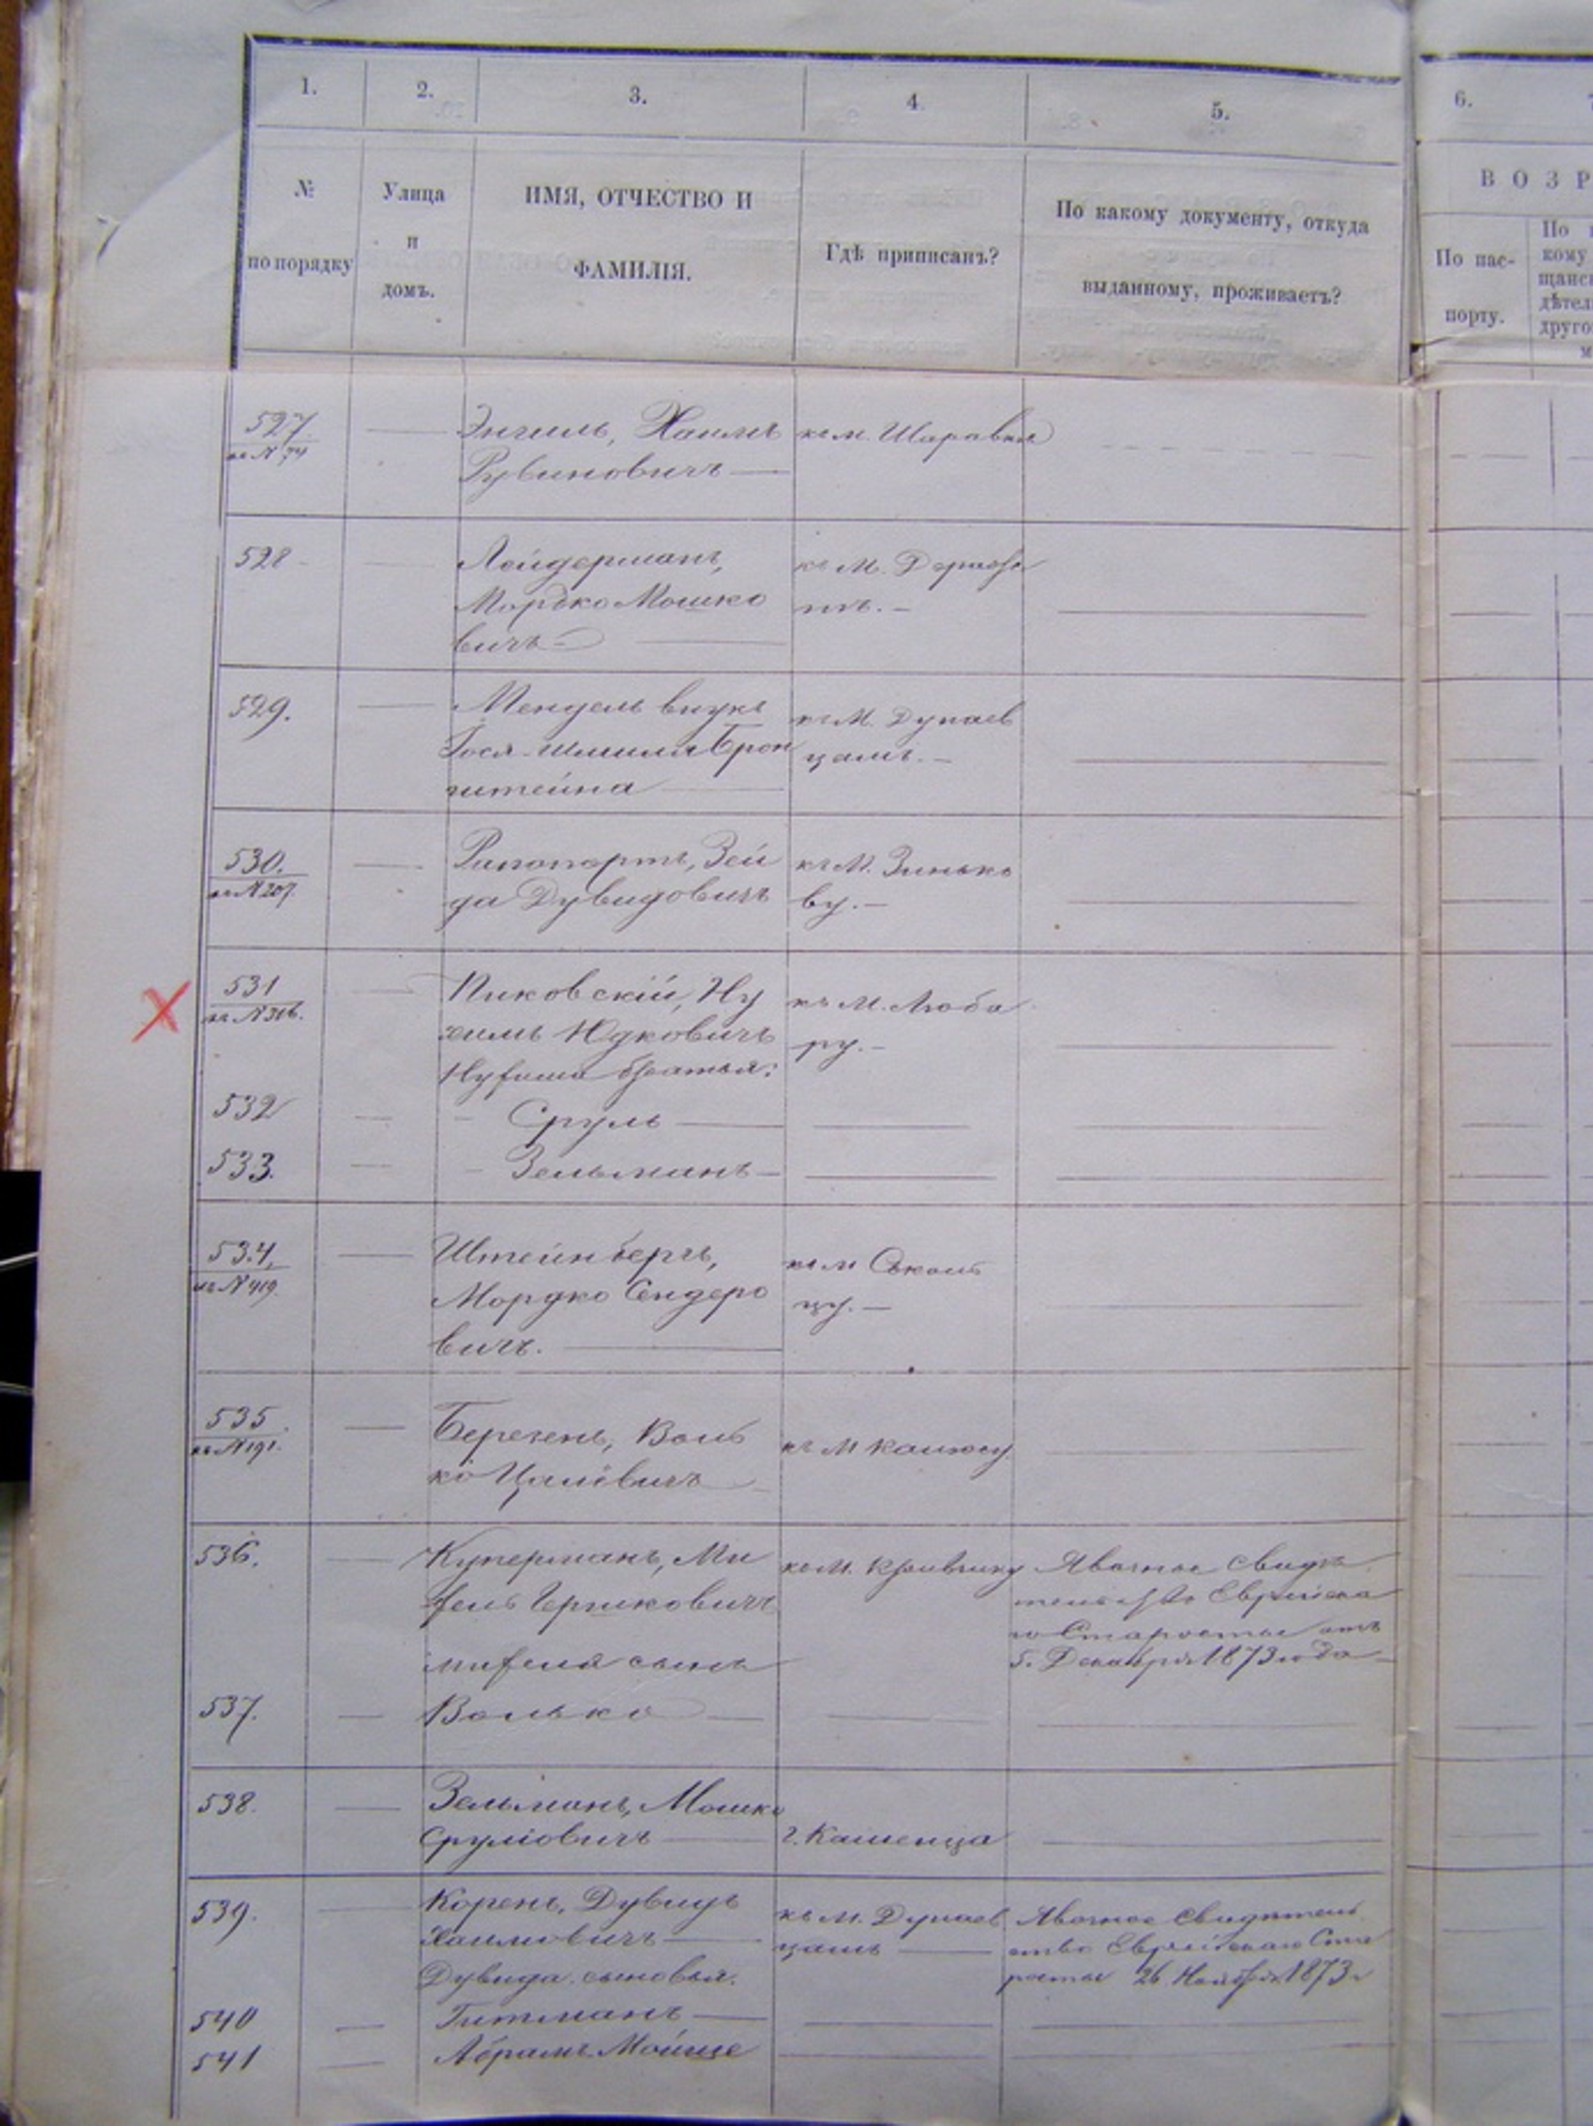 1. 2. 3. 4. 5. 6.
№ по порядку
Улица и домъ.
ИМЯ, ОТЧЕСТВО И
ФАМИЛІЯ.
Гдѣ приписанъ?
По какому документу, откуда
выданному, проживаетъ?
ВОЗР
По пас-
порту.
527.
Энгель, Хаимъ
Рувиновичъ
къ м. Шаравка
528
Лойдерманъ,
Мордко Мошко
вичъ
къ м. Дераж
нѣ.
529.
Мендель внукъ
Бron
штейна
къ м. Дунаев
цамъ.
530.
къ № 207.
Рапопортъ, Зей
да Дувидовичъ
къ м. Зинько
ву.
531
къ № 306.
Пиковскій, Ну
химъ Юдковичъ
Нухима братья:
къ м. Люба
ру.
532
Сруль
533.
Зельманъ
534.
къ № 419.
Штейнбергъ,
Мордко Сендеро
вичъ.
къ м
цу.
535
къ № 191.
Березенъ, Воль
ко
къ м Калюсу.
536.
Куперманъ, Ми
хель Гершковичъ
къ м. Кривчику
Явочное свидѣ
тельство Еврейска
го Старосты отъ
5. Декабря 1873 года
Михеля сынъ
537.
Волько
538.
Зельманъ, Мошко
Сруліовичъ
г. Каменца
539.
Коренъ, Дувидъ
Хаимовичъ
Дувида сыновья.
къ м. Дунаев
цамъ
Явочное свидѣтель
ство Еврейскаго Ста
росты 26 Ноября 1873 г
540
Гитманъ
541
Абрамъ Мойше